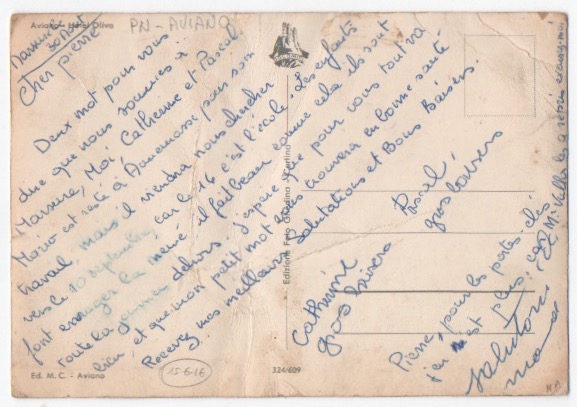 Aviano - Hotel Oliva
PN-AVIANO
Marsure le
30 Août
Cher Pierre
Deux mot pour vous
dire que nous sommes à
Marsure, Moi, Catherine et Pascal
Mario est resté à Annemasse pour son
travail, mais il viendra nous chercher
vers le 10 septembre, car le 16 c'est l'école. Les enfants
font enrager la mémé, il fait beau comme cela ils sont
toute la journée dehors. J'espère que pour vous tout va
bien, et que mon petit mot vous trouvera en bonne santé
Recevez nos meilleurs salutations et Bons Baisers.
Catherine
gros baisers
Pascal,
gros baisers
Pierre, pour les portes clés
j'en est plus, car
Mi la repris excusez moi
salutations
Edizione Foto Giordano Merlino
Ed. M. C. - Aviano
15-6-16
324/609